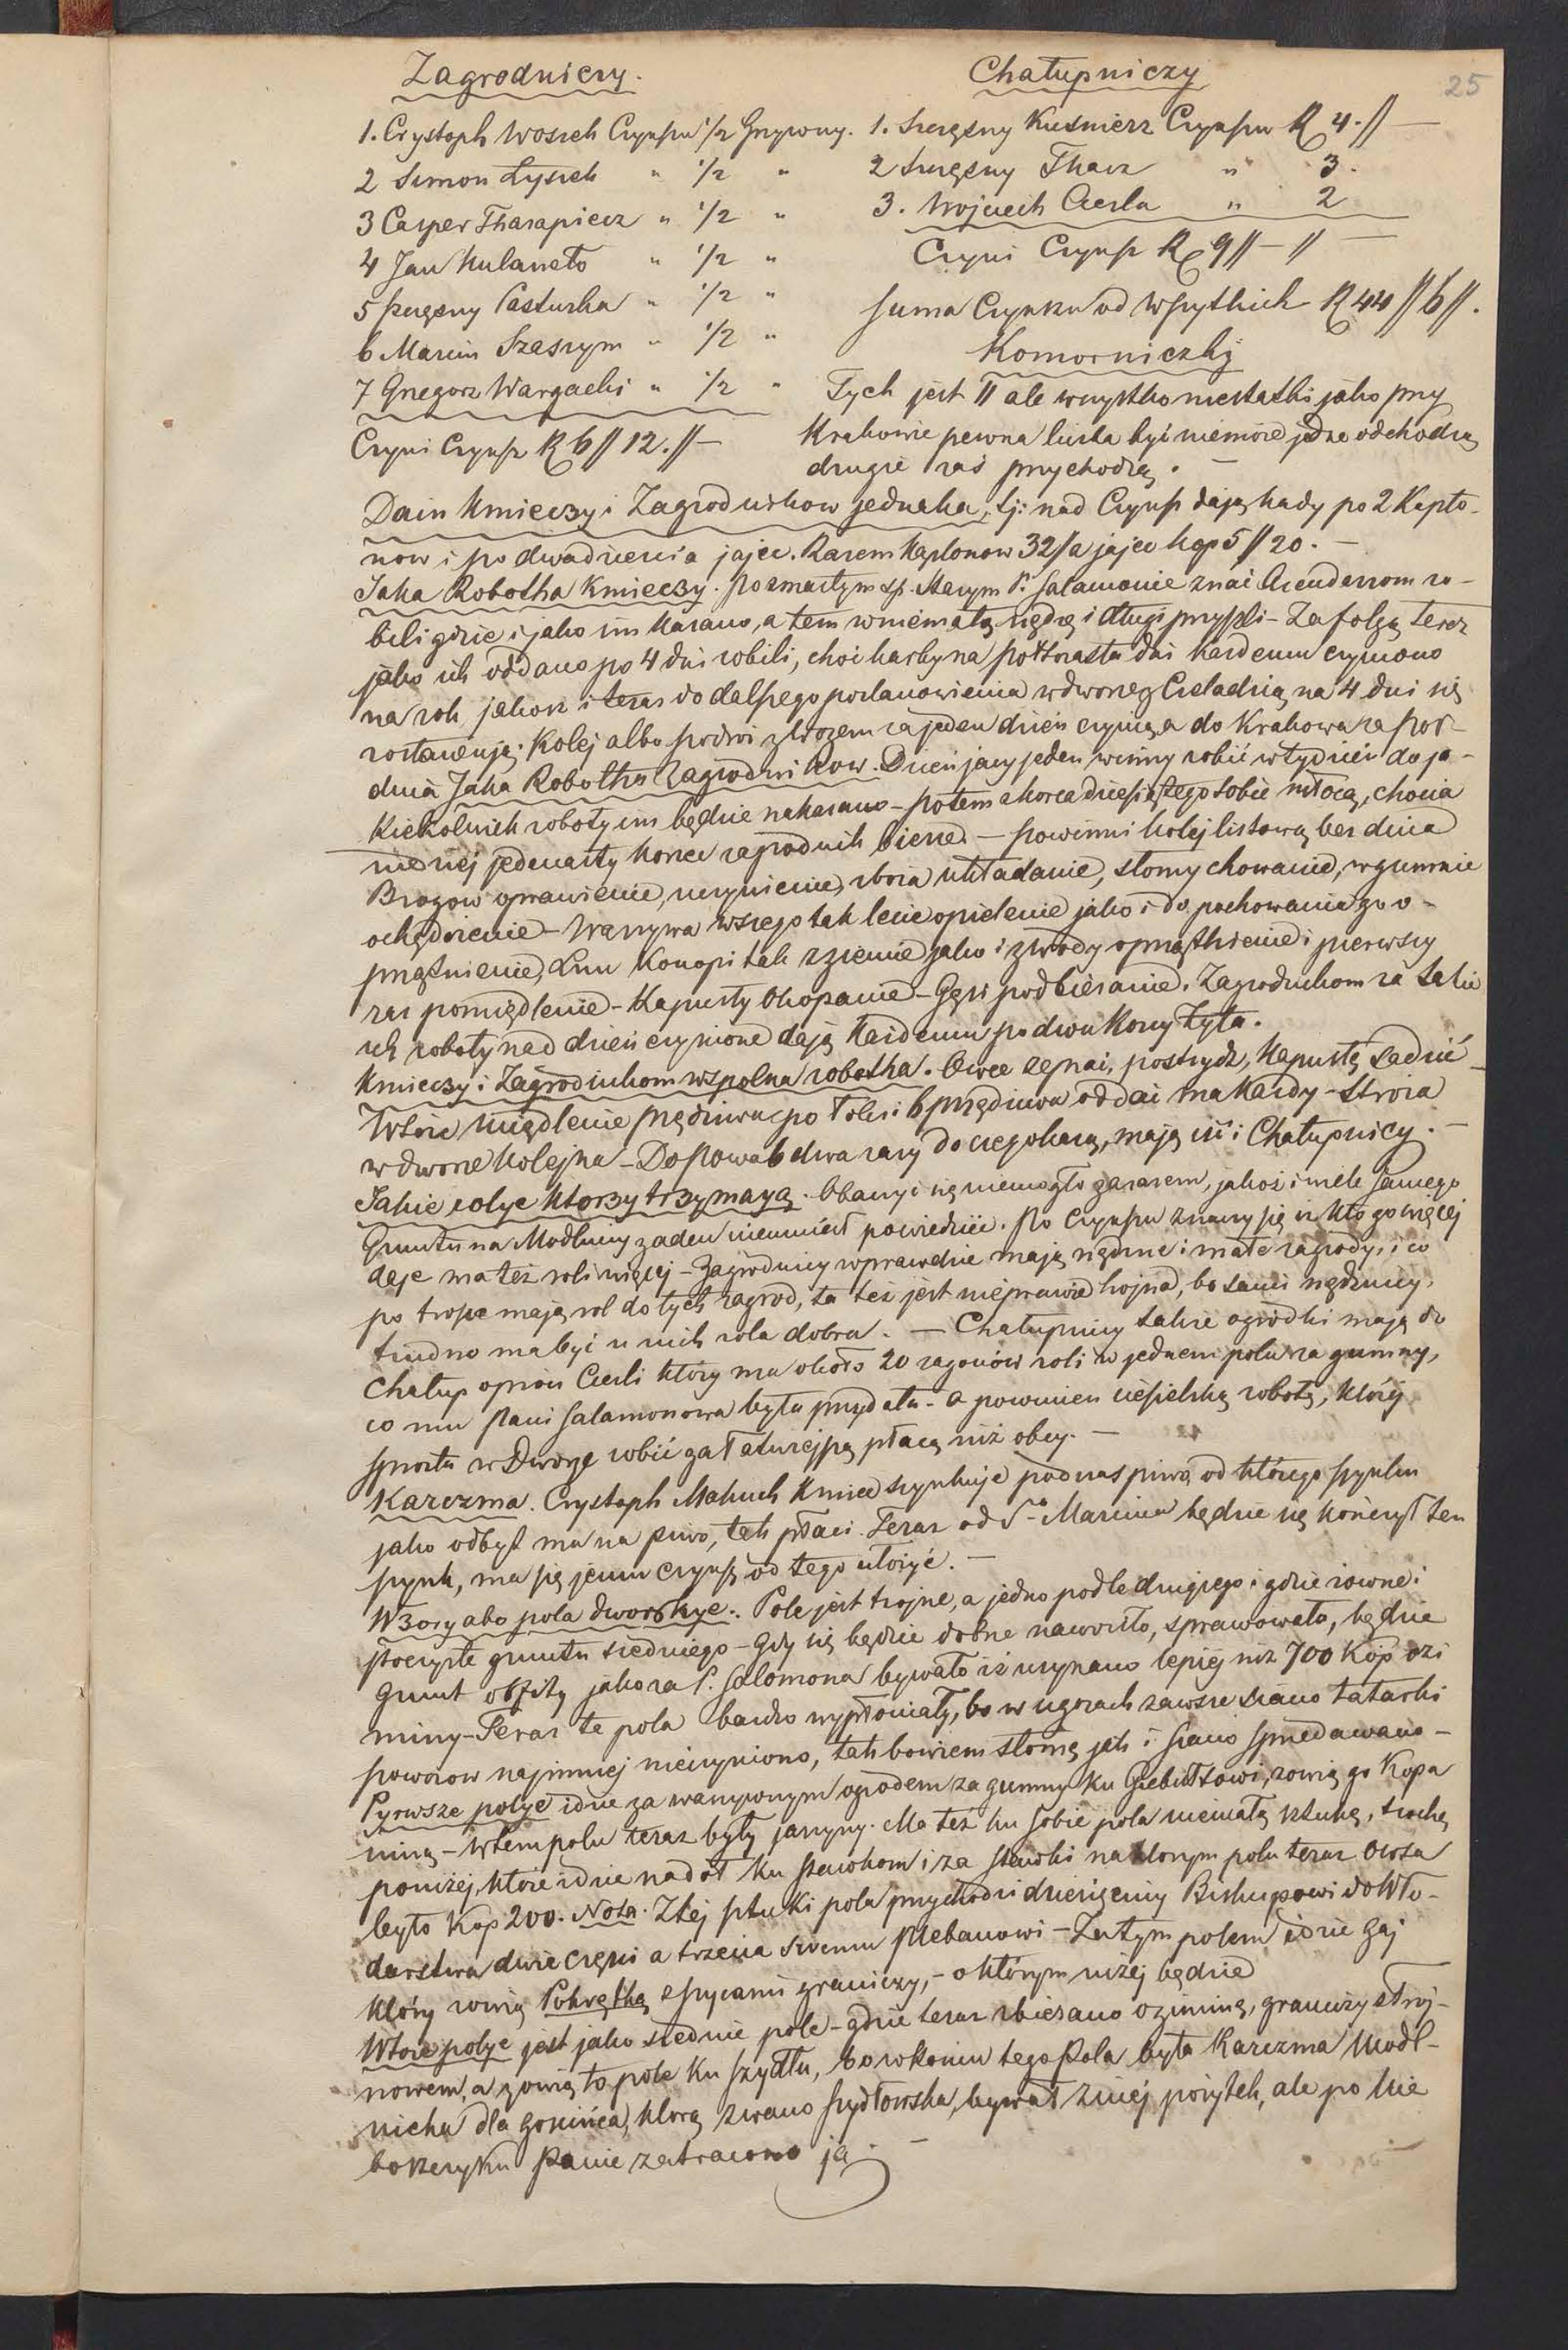 25
Zagrodniczy.
1. Crystoph Wosiek Czynszu 1/2 Grzywny.
2 Simon Łysiek " 1/2 "
3 Casper Tharapiecz " 1/2 "
4 Jan Kulaneto " 1/2 "
5 Szczęsny Pastucha " 1/2 "
6 Marcin Szaszym " 1/2 "
7 Gregorz Wargacki " 1/2 "
Czyni Czynsz R 6 // 12. // —
Chałupniczy
1. Szczęsny Kuśnierz Czynszu R 4. // —
2 Szczęsny Tkacz " 3.
3. Wojciech Ciesla " 2
Czyni Czynsz R 9 // — // —
Suma Czynszu od wszytkich R 44 // 6 //.
Komorniczky
Tych jest 11 ale wszystko niestatki jako przy
Krakowie pewna liczba być niemoże jedne odchodzą
drugie zaś przychodzą. —
Dain Kmieczy i Zagrodnikow jednaka, tj: nad Czynsz dają kady po 2 Kapło-
now i po dwadziescia jajec. Razem Kapłonow 32 // a jajec kop 5 // 20. —
Jaka Robotha Kmieczy. po zmarłym sp. starym P. Salamonie znać Arendarzom ro-
bili gdzie i jako im kazano, a tem w niemałą nędzę i długi przyszli — Za folgą teraz
jako ich oddano po 4 dni robili, choć karby na półtorasta dni każdemu czyniono
na rok, jakoż i teraz do dalszego postanowienia w dworze z Czeladzią na 4 dni się
zostawują. Kolej albo podwod z zbożem za jeden dzień czynią a do Krakowa za poł-
dnia Jaka Robotha Zagrodnikow. Dzień jacy jeden winny robić w tydzień do ja-
kiekolwiek roboty im będzie nakazano — potem z korca dziesiątego sobie młocą, chocia
niewiej jedenasty korzec zagrodnik bierze. — powinni kolej listową bez dnia
Brogow oprawienie, uczynienie, zboża układanie, słomy chowanie, w gumnie
ochędożenie — Warzywa wszego tak lecie opielenie jako i do pochowania go o-
przątnienie, Lnu Konopi tak z ziemie jako i z wody oprzątnienie i pierwszy
raz pomiędlenie — Kapusty Okopanie — Gęsi podbieranie. Zagrodnikom za takie
ich roboty nad dzień czynione dają każdemu po dwu korcy żyta.
Kmieczy i Zagrodnikom wspolna robotha. Owce zegnać, postrzydz, Kapustę sadzić
Wtóre międlenie przędziwa, po łokci 6 przędziwa oddać ma każdy — stroża
w dworze kolejna — Do stawa 6 dwa razy do czego każą, mają iść i Chałupnicy. —
Jakie rolye ktorzy trzymaya. Obaczyć się niemogło zarazem, jakoż i wiele samego
Gruntu na Modlnicy żaden nieumiał powiedzieć. Po czynszu znaczy się iż kto go więcej
daje ma też roli więcej — Zagrodnicy wprawdzie mają nędzne i małe zagrody, i co
po trosze mają rol do tych zagrod, ta też jest nieprawie hojna, bo sami nędznicy,
trudno ma być u nich rola dobra. — Chałupnicy także ogródki mają do
chałup oprócz Cieśli który ma około 20 zagonów roli w jednem polu za gumny,
co mu Pani Salamonowa była przydała — a powinien ciesielską robotę, której
sprosta w Dworze robić za łatwiejszą płacą niż obcy. —
Karczma. Crystoph Makuch Kmiec szynkuje podczas piwo, od którego szynku
jako odbył ma na piwo, tak płaci. Teraz od S. Marcina będzie się kończył ten
szynk, ma się jemu czynsz od tego ułożyć. —
Wzory abo pola dworskye. Pole jest trojne, a jedno podle drugiego i gdzie rowne i
poczyste gruntu średniego — Gdy się będzie dobrze nawoziło, sprawowało, będzie
grunt obfity jako za P. Salomona bywało iż użynano lepiej niż 700 Kóp ozi
miny — Teraz te pola bardzo wypłoniały, bo w ugorach zawsze siano tatarki
powozow najmniej nieczyniono, tak bowiem słomę jak i siano sprzedawano —
Pyrwsze polye idzie za warzywnym ogrodem za gumny ku Giebułtowi, zowią go Kopa
niną — W tem polu teraz były jarzyny. Ma też ku sobie pola niemałą sztukę, trochę
poniżej, które idzie nadół ku stawkom i za stawki na ktorym polu teraz Owsa
było kop 200. Nota. Z tej sztuki pola przychodzi dziesięciny Biskupowi do Wło-
darstwa dwie części a trzecia swemu Plebanowi — Za tym polem idzie Gaj
który zowią Pokrętką z Pycami graniczy, — o którym niżej będzie
Wtore polye jest jako średnie pole — gdzie teraz zbierano oziminę, graniczy z Troj-
nowem, a zowią to pole ku Szydłu, bo w końcu tego Pola była Karczma Modl-
nicka dla gościńca, ktorą zwano szydłowska, bywał z niej pożytek, ale po Nie
boszczyku Panie zatracono ją. —